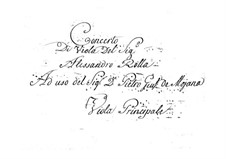 Concerto
Di Viola Del Sig.e
Alessandro Rolla
Ad uso del Sig.e D. Pietro de Mojana
Viola Principale